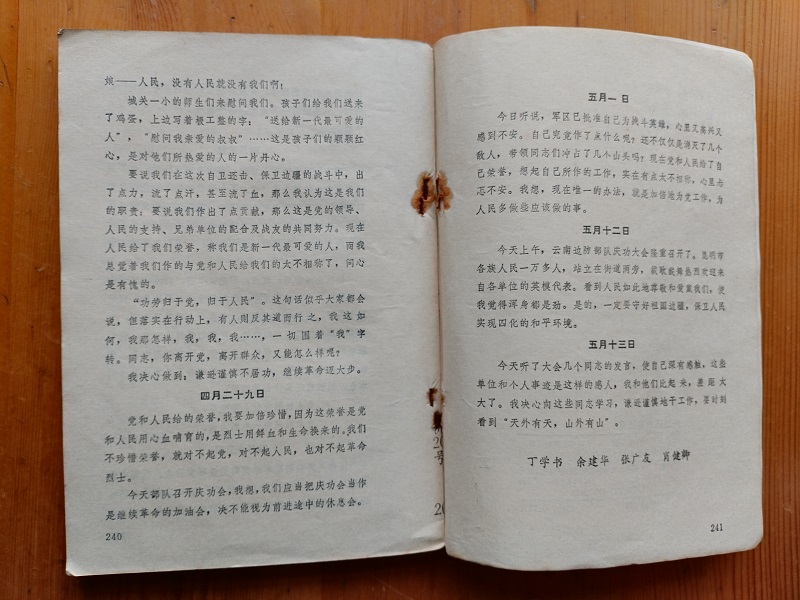 娘——人民，没有人民就没有我们啊！
城关一小的师生们来慰问我们。孩子们给我们送来
了鸡蛋，上边写着极工整的字：“送给新一代最可爱的
人”，“慰问我亲爱的叔叔”……这是孩子们的颗颗红
心，是对他们所热爱的人的一片丹心。
要说我们在这次自卫还击、保卫边疆的战斗中，出
了点力，流了点汗，甚至流了血，那么我认为这是我们
的职责；要说我们作出了点贡献，那么这是党的领导、
人民的支持、兄弟单位的配合及战友的共同努力。现在
人民给了我们荣誉，称我们是新一代最可爱的人，而我
总觉着我们作的与党和人民给我们的太不相称了，问心
是有愧的。
“功劳归于党，归于人民”。这句话似乎大家都会
说，但落实在行动上，有人则反其道而行之，我这如
何，我那怎样，我，我，我……，一切围着“我”字
转。同志，你离开党，离开群众，又能怎么样呢？
我决心做到：谦逊谨慎不居功，继续革命迈大步。
四月二十九日
党和人民给的荣誉，我要加倍珍惜，因为这荣誉是党
和人民用心血哺育的，是烈士用鲜血和生命换来的。我们
不珍惜荣誉，就对不起党，对不起人民，也对不起革命
烈士。
今天部队召开庆功会，我想，我们应当把庆功会当作
是继续革命的加油会，决不能视为前进途中的休息会。
240
号
五月一日
今日听说，军区已批准自己为战斗英雄，心里又高兴又
感到不安。自己究竟作了点什么呢？还不仅仅是消灭了几个
敌人，带领同志们冲占了几个山头吗？现在党和人民给了自
己荣誉，想起自己所作的工作，实在有点太不相称，心里忐
忑不安。我想，现在唯一的办法，就是加倍地为党工作，为
人民多做些应该做的事。
五月十二日
今天上午，云南边防部队庆功大会隆重召开了。昆明市
各族人民一万多人，站立在街道两旁，载歌载舞热烈欢迎来
自各单位的英模代表。看到人民如此地尊敬和爱戴我们，使
我觉得浑身都是劲。是的，一定要守好祖国边疆，保卫人民
实现四化的和平环境。
五月十三日
今天听了大会几个同志的发言，使自己深有感触，这些
单位和个人事迹是这样的感人，我和他们比起来，差距太
大了。我决心向这些同志学习，谦逊谨慎地干工作，要时刻
看到“天外有天，山外有山”。
丁学书 余建华 张广友 肖健卿
241